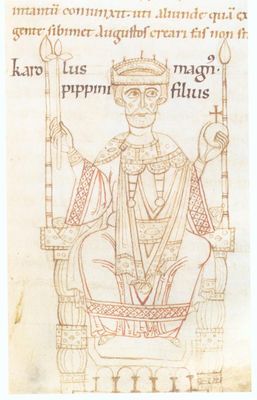 intantū coniunxit. uti aliunde quā ex
gente sibimet Augustos creari fas non
karolus magn᾿.
pippini filius